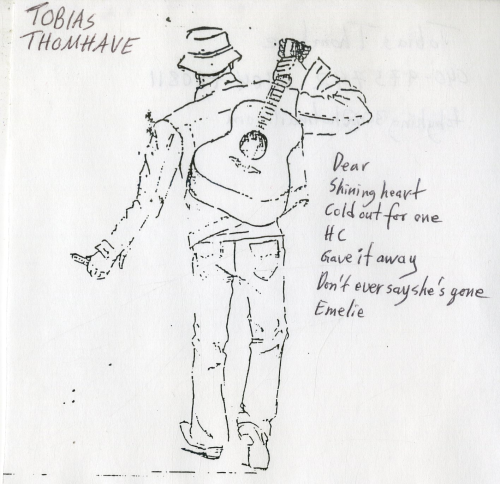 TOBIAS
THOMHAVE
Dear
Shining heart
Cold out for one
HC
Gave it away
Don't ever say she's gone
Emelie